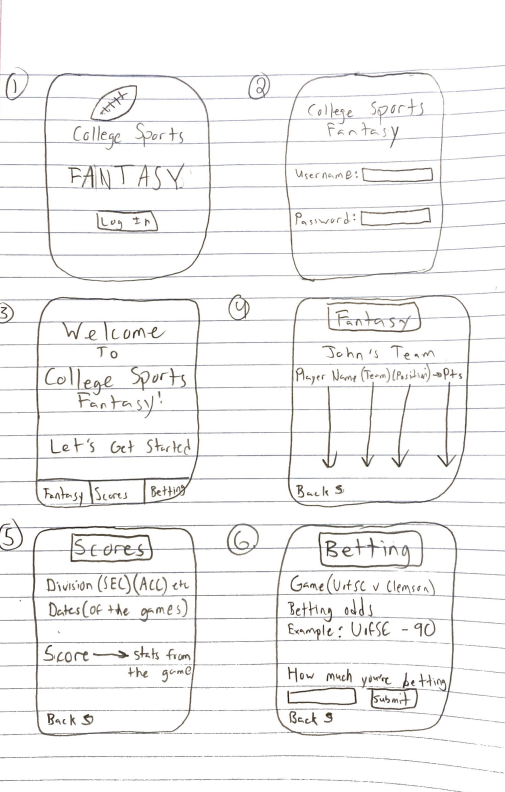 1
College Sports
FANTASY
Log In
2
College Sports
Fantasy
Username:
Password:
3
Welcome
To
College Sports
Fantasy!
Let's Get Started
Fantasy Scores Betting
4
Fantasy
John's Team
Player Name (Team) (Position) → Pts
Back
5
Scores
Division (SEC) (ACC) etc
Dates (of the games)
Score → stats from
the game
Back
6
Betting
Game (UofSC v Clemson)
Betting odds
Example: UofSC - 90
How much you're betting
Submit
Back